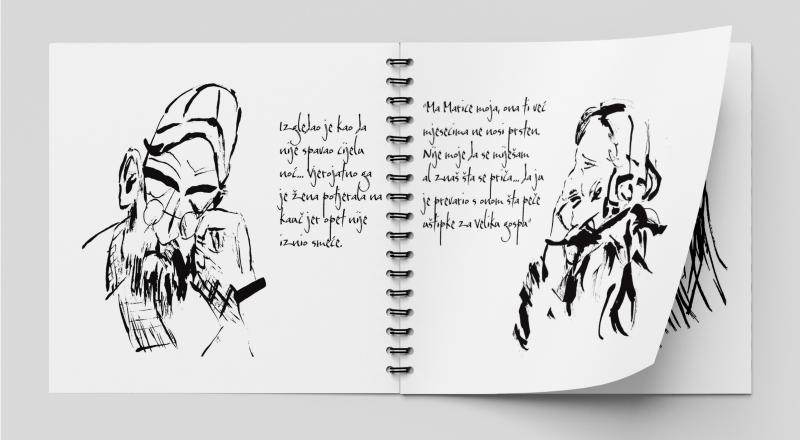 Izgledao je kao da
nije spavao cijelu
noć... Vjerojatno ga
je žena potjerala na
kauč jer opet nije
iznio smeće.
"Ma Marice moja, ona ti već
mjesecima ne nosi prsten.
Nije moje da se miješam
al znaš šta se priča... da ju
je prevario s onom šta peče
uštipke za Veliku gospu"